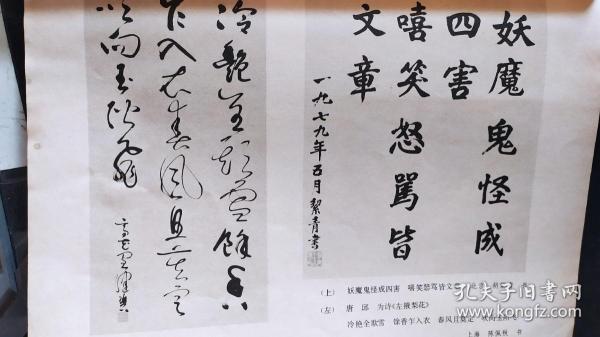 妖魔鬼怪成
四害
嘻笑怒骂皆
文章
一九七九年五月 絜青書
冷艳全欺雪余香
乍入衣春风且莫定
吹向玉阶飞
（上） 妖魔鬼怪成四害 嘻笑怒骂皆文
（左） 唐 邱 为诗《左掖梨花》
冷艳全欺雪 余香乍入衣 春风且莫定
上海 陈佩秋 书
孔夫子旧书网